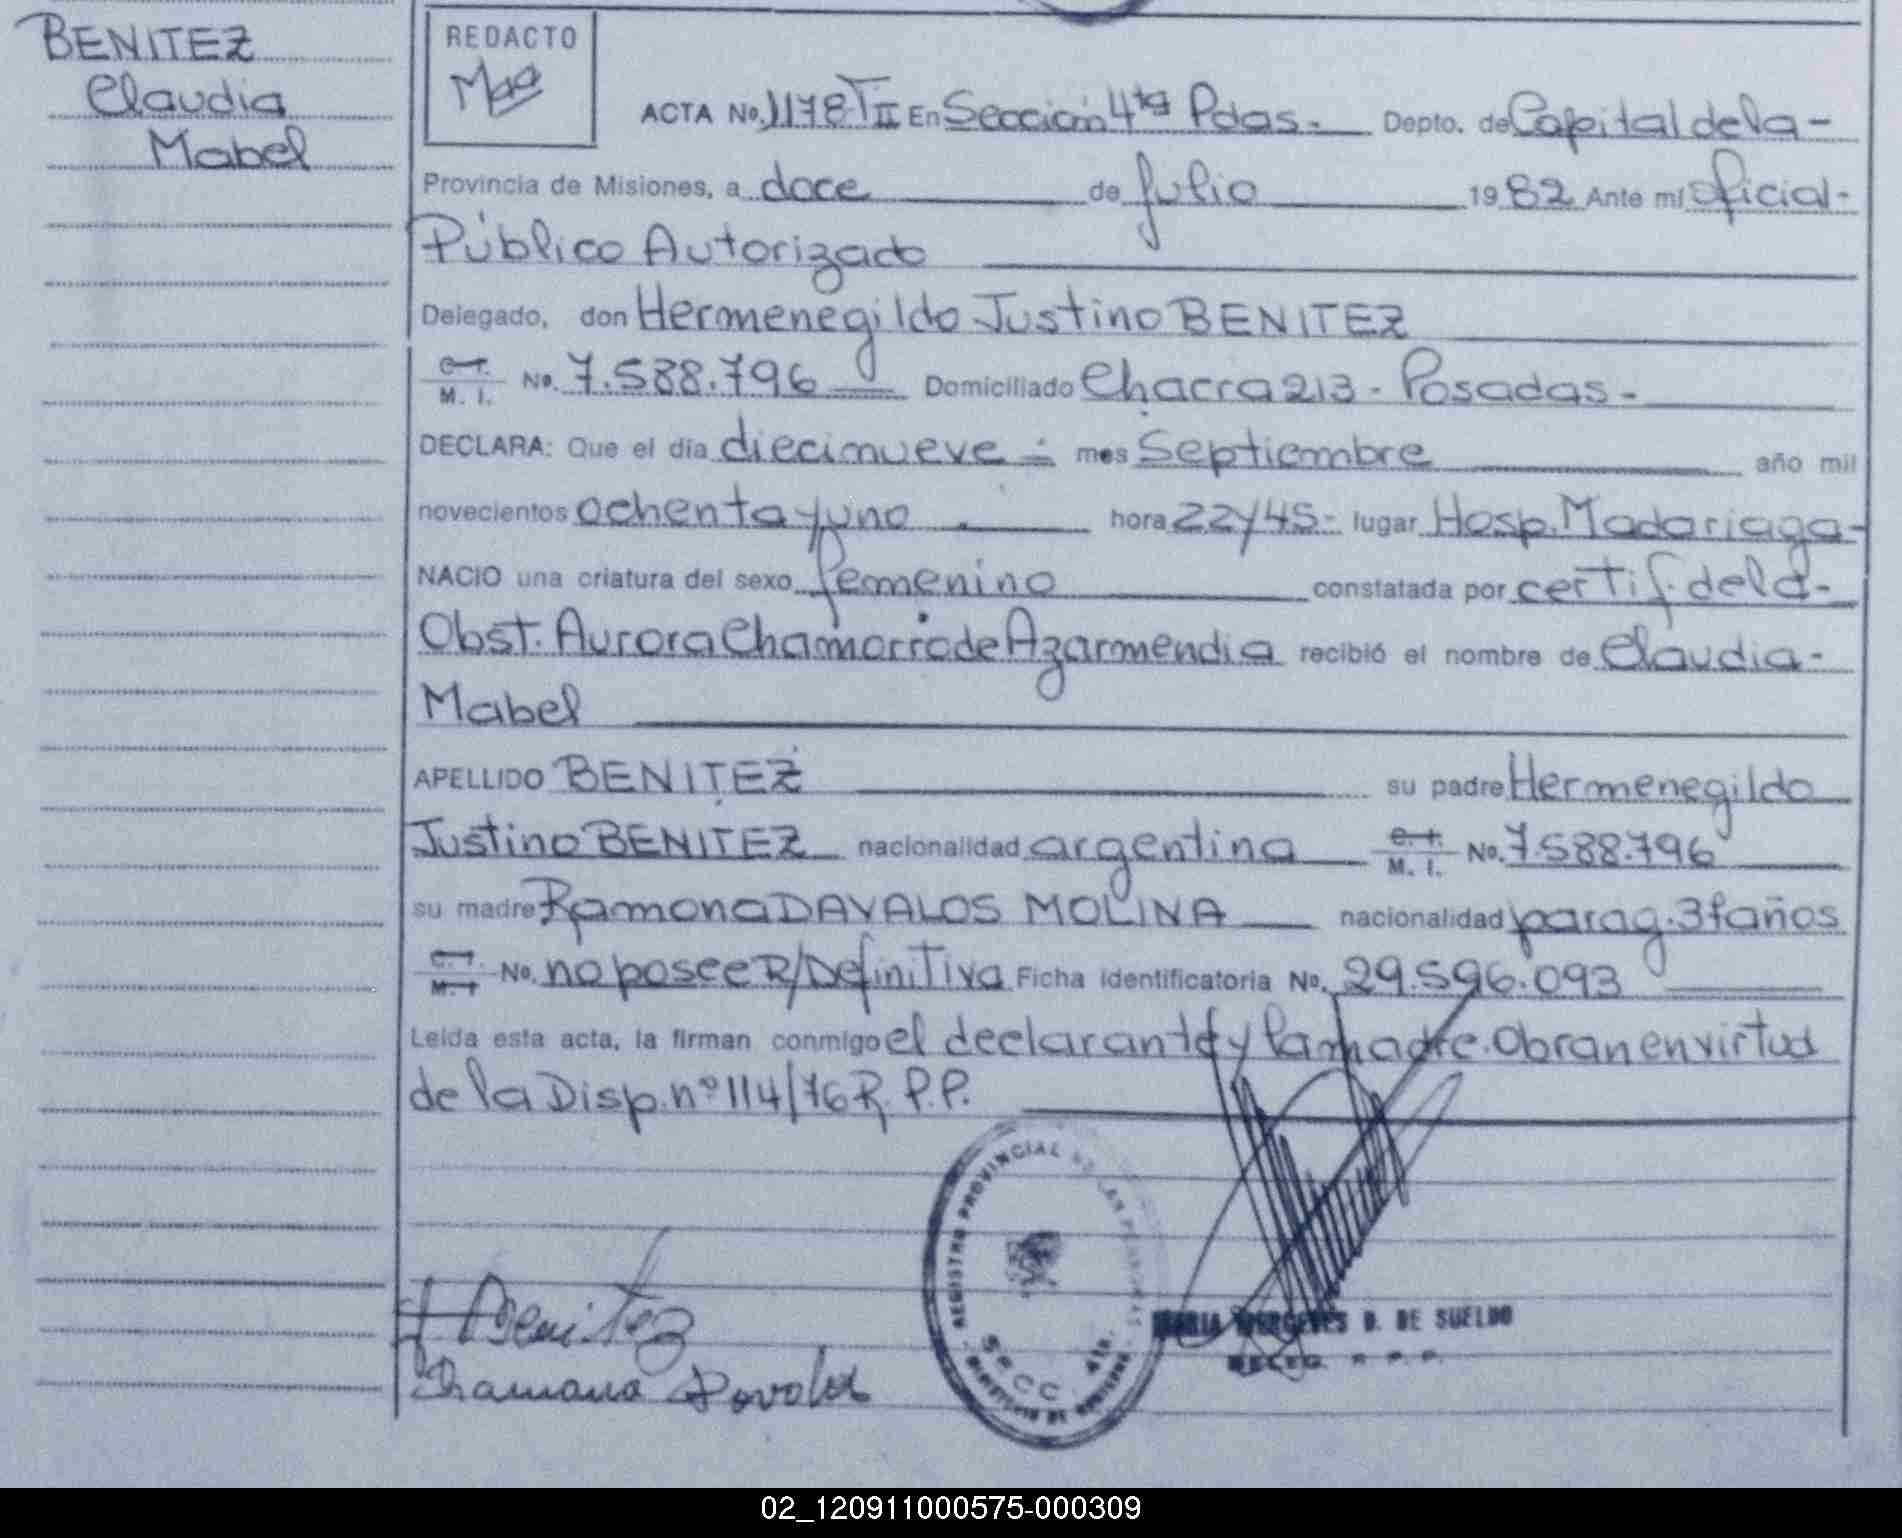 BENITEZ
Claudia
Mabel
REDACTO
ACTA No. 1178 T II En Sección 4ta Pdas.- Depto. de Capital de la-
Provincia de Misiones, a doce de Julio 1982 Ante mí Oficial-
Público Autorizado
Delegado, don Hermenegildo Justino BENITEZ
C.I. M. I. No. 7.588.796 Domiciliado Chacra 213 - Posadas-
DECLARA: Que el día diecinueve - mes Septiembre año mil
novecientos ochenta y uno hora 22y45- lugar Hosp. Madariaga-
NACIO una criatura del sexo femenino constatada por certif. de la-
Obst. Aurora Chamorro de Azarmendia recibió el nombre de Claudia-
Mabel
APELLIDO BENITEZ su padre Hermenegildo
Justino BENITEZ nacionalidad argentina C.I. M. I. No. 7.588.796
su madre Ramona DAVALOS MOLINA nacionalidad parag. 37 años
C.I. M. I No. no posee R/Definitiva Ficha Identificatoria No. 29.596.093
Leída esta acta, la firman conmigo el declarante y la madre. Obran en virtud
de la Disp. nº 114/76 R. P.P.
REGISTRO PROVINCIAL DE LAS PERSONAS
MINISTERIO DE GOBIERNO
Benitez
MARIA MERCEDES D. DE SUELDO
R. P. P.
Ramona Davalos
02_120911000575-000309